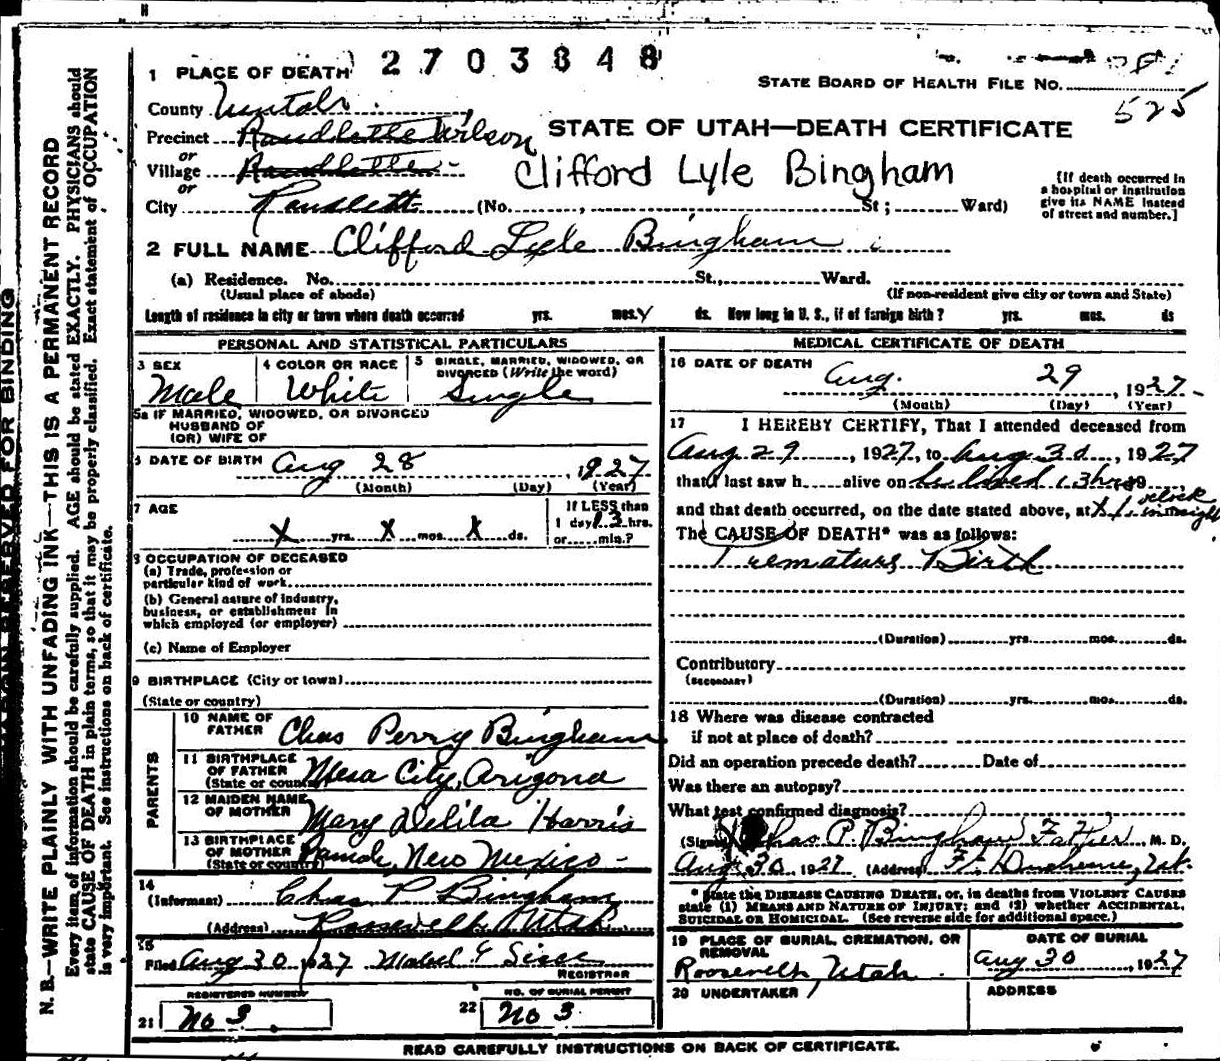 2703848
1 PLACE OF DEATH
STATE BOARD OF HEALTH FILE NO.
525
County Uintah
Precinct Randlette Wilson
STATE OF UTAH—DEATH CERTIFICATE
or
Village Randlette
Clifford Lyle Bingham
or
City Randlett (No. , St; Ward)
[If death occurred in
a hospital or institution
give its NAME instead
of street and number.]
2 FULL NAME Clifford Lyle Bingham
(a) Residence. No. St., Ward.
(Usual place of abode) (If non-resident give city or town and State)
Length of residence in city or town where death occurred yrs. mos. ds. How long in U. S., if of foreign birth? yrs. mos. ds
PERSONAL AND STATISTICAL PARTICULARS
3 SEX 4 COLOR OR RACE 5 SINGLE, MARRIED, WIDOWED, OR
DIVORCED (Write the word)
Male White Single
5a IF MARRIED, WIDOWED, OR DIVORCED
HUSBAND OF
(OR) WIFE OF
6 DATE OF BIRTH Aug 28, 1927
(Month) (Day) (Year)
7 AGE If LESS than
1 day, 13 hrs.
X yrs. X mos. X ds. or min.?
8 OCCUPATION OF DECEASED
(a) Trade, profession or
particular kind of work
(b) General nature of industry,
business, or establishment in
which employed (or employer)
(c) Name of Employer
9 BIRTHPLACE (City or town)
(State or country)
PARENTS
10 NAME OF
FATHER Chas Perry Bingham
11 BIRTHPLACE
OF FATHER
(State or country) Mesa City, Arizona
12 MAIDEN NAME
OF MOTHER Mary Delila Harris
13 BIRTHPLACE
OF MOTHER
(State or country) New Mexico
14
(Informant) Chas P Bingham
(Address) Roosevelt Utah
15
Filed Aug 30 1927 Mabel
REGISTRAR
REGISTERED NUMBER
21 No 3
NO. OF BURIAL PERMIT
22 No 3
MEDICAL CERTIFICATE OF DEATH
16 DATE OF DEATH
Aug. 29, 1927
(Month) (Day) (Year)
17 I HEREBY CERTIFY, That I attended deceased from
Aug 29, 1927, to Aug 30, 1927
that I last saw h alive on he lived 13 hrs 19
and that death occurred, on the date stated above, at o'clock
midnight
The CAUSE OF DEATH* was as follows:
Premature Birth
(Duration) yrs. mos. ds.
Contributory
(SECONDARY)
(Duration) yrs. mos. ds.
18 Where was disease contracted
if not at place of death?
Did an operation precede death? Date of
Was there an autopsy?
What test confirmed diagnosis?
(Signed) Chas P. Bingham Father M. D.
Aug 30 1927 (Address) Ft. Duchesne, Ut.
* State the DISEASE CAUSING DEATH, or, in deaths from VIOLENT CAUSES
state (1) MEANS AND NATURE OF INJURY; and (2) whether ACCIDENTAL,
SUICIDAL OR HOMICIDAL. (See reverse side for additional space.)
19 PLACE OF BURIAL, CREMATION, OR
REMOVAL
Roosevelt, Utah
DATE OF BURIAL
Aug 30, 1927
20 UNDERTAKER ADDRESS
READ CAREFULLY INSTRUCTIONS ON BACK OF CERTIFICATE.
RESERVED FOR BINDING
N. B.—WRITE PLAINLY WITH UNFADING INK—THIS IS A PERMANENT RECORD
Every item of information should be carefully supplied. AGE should be stated EXACTLY. PHYSICIANS should
state CAUSE OF DEATH in plain terms, so that it may be properly classified. Exact statement of OCCUPATION
is very important. See instructions on back of certificate.